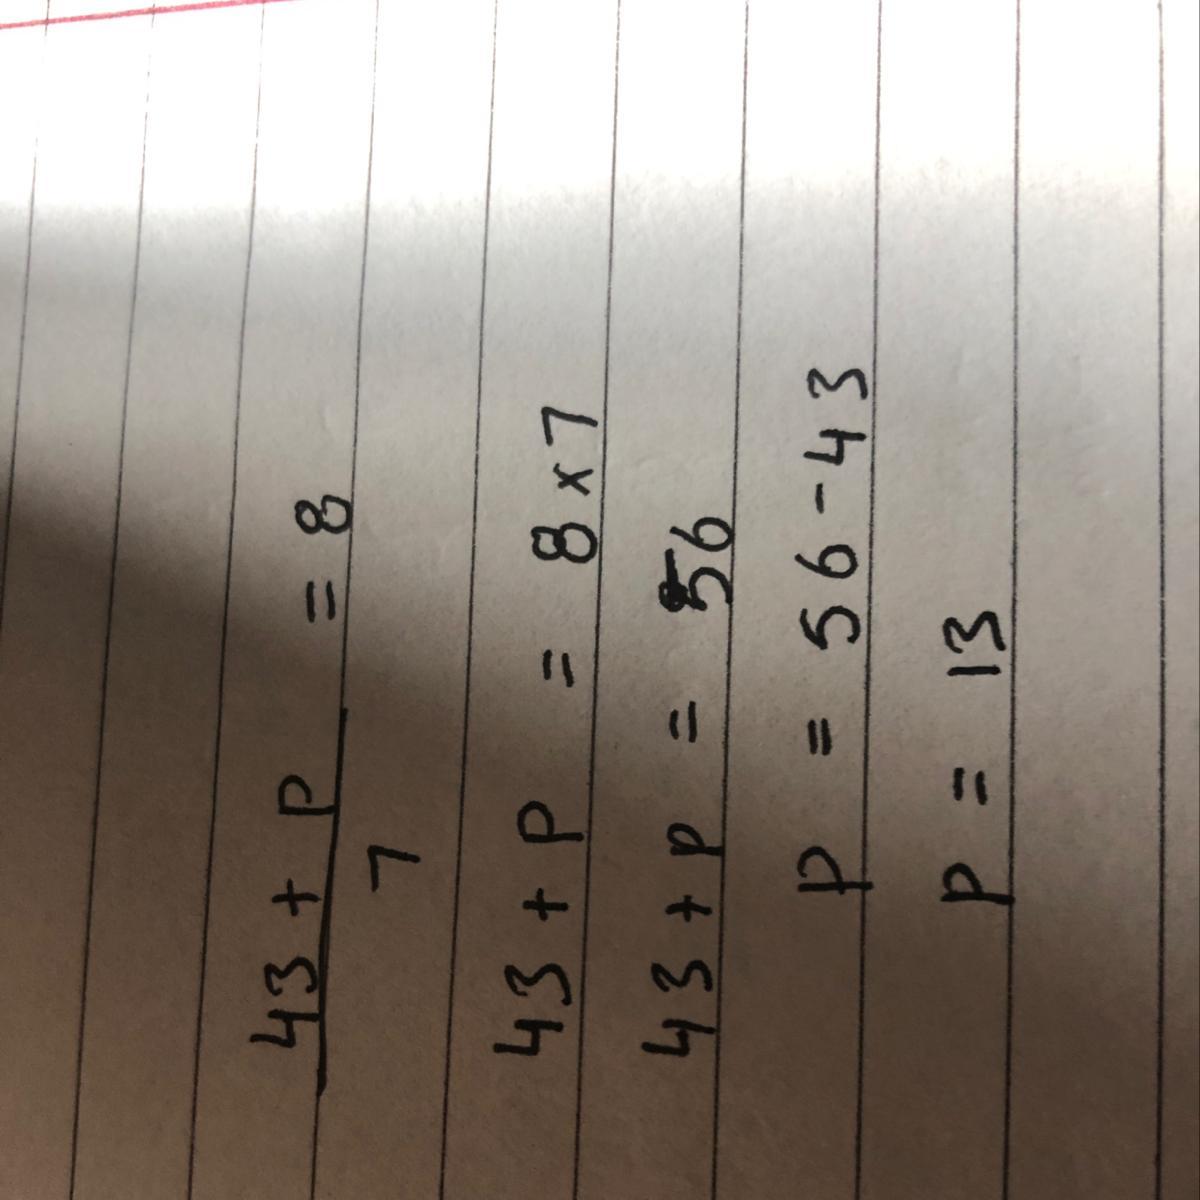 43 + P = 8
7
43 + P = 8 × 7
43 + P = 56
P = 56 - 43
P = 13